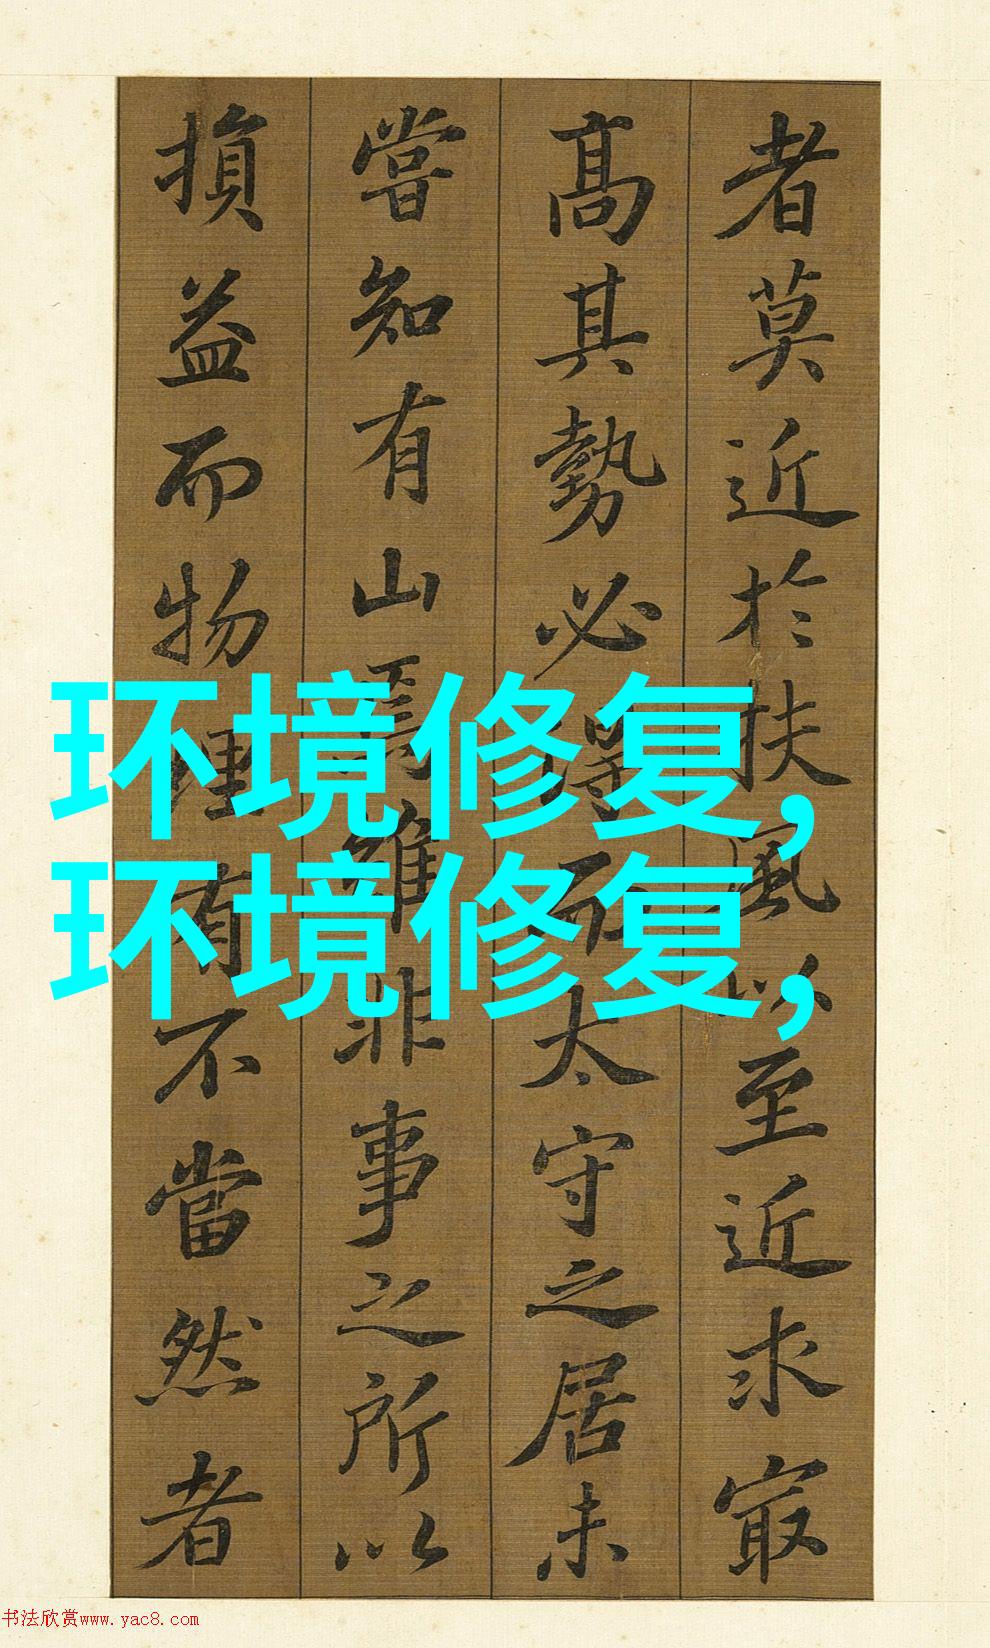 者莫近於扶風以至近求㝡
髙其勢必得而太守之居未
嘗知有山焉雖非事之所以
損益而物理有不當然者
环境修复,
环境修复,
书法欣赏www.yac8.com